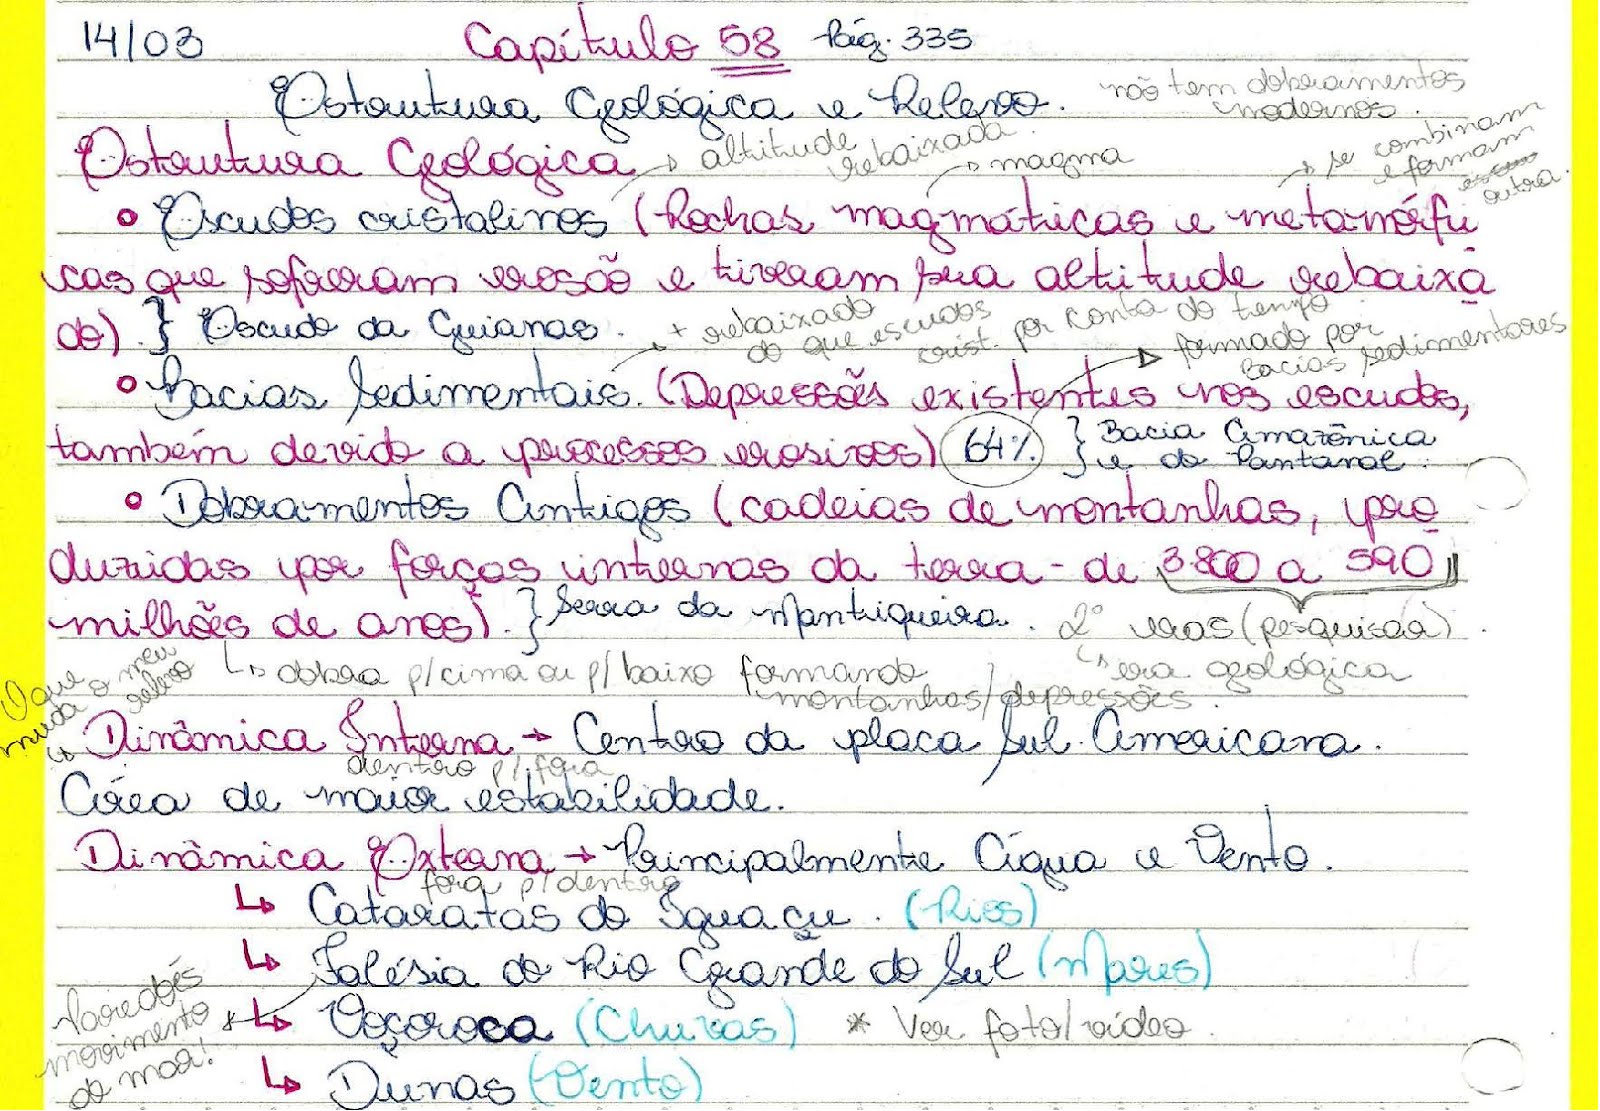 14/03 Capítulo 58 Pág. 335
Estrutura Geológica e Relevo. não tem dobramentos
modernos.
Estrutura Geológica → altitude
rebaixada. → magma → se combinam
e formam
outra.
• Escudos cristalinos (Rochas magmáticas e metamórfi
cas que sofreram erosão e tiveram sua altitude rebaixa
do). } Escudo da Guianas. + rebaixado
do que escudos
crist. por conta do tempo
formado por
bacias sedimentares
• Bacias Sedimentais. (Depressões existentes nos escudos,
também devido a processos erosivos) 64% } Bacia Amazônica
e do Pantanal.
• Dobramentos Antigos (cadeias de montanhas, pro
duzidas por forças internas da terra - de 3.800 a 590
milhões de anos). } Serra da Mantiqueira. 2º eras (pesquisar).
↳ dobra p/ cima ou p/ baixo formando
montanhas/depressões.
↳ era geológica
O que
muda o meu
relevo
↳ Dinâmica Interna → Centro da placa Sul Americana.
dentro p/ fora
Área de maior estabilidade.
Dinâmica Externa → Principalmente Água e Vento.
fora p/ dentro
↳ Cataratas do Iguaçu. (Rios)
↳ Falésia do Rio Grande do Sul (Mares)
Paredões
movimento
do mar!
* ↳ Voçoroca (Chuvas) * Ver foto/vídeo.
↳ Dunas (Vento)